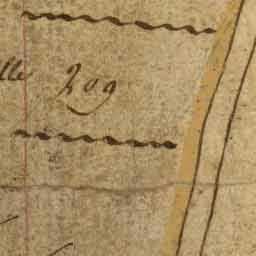 lle 209